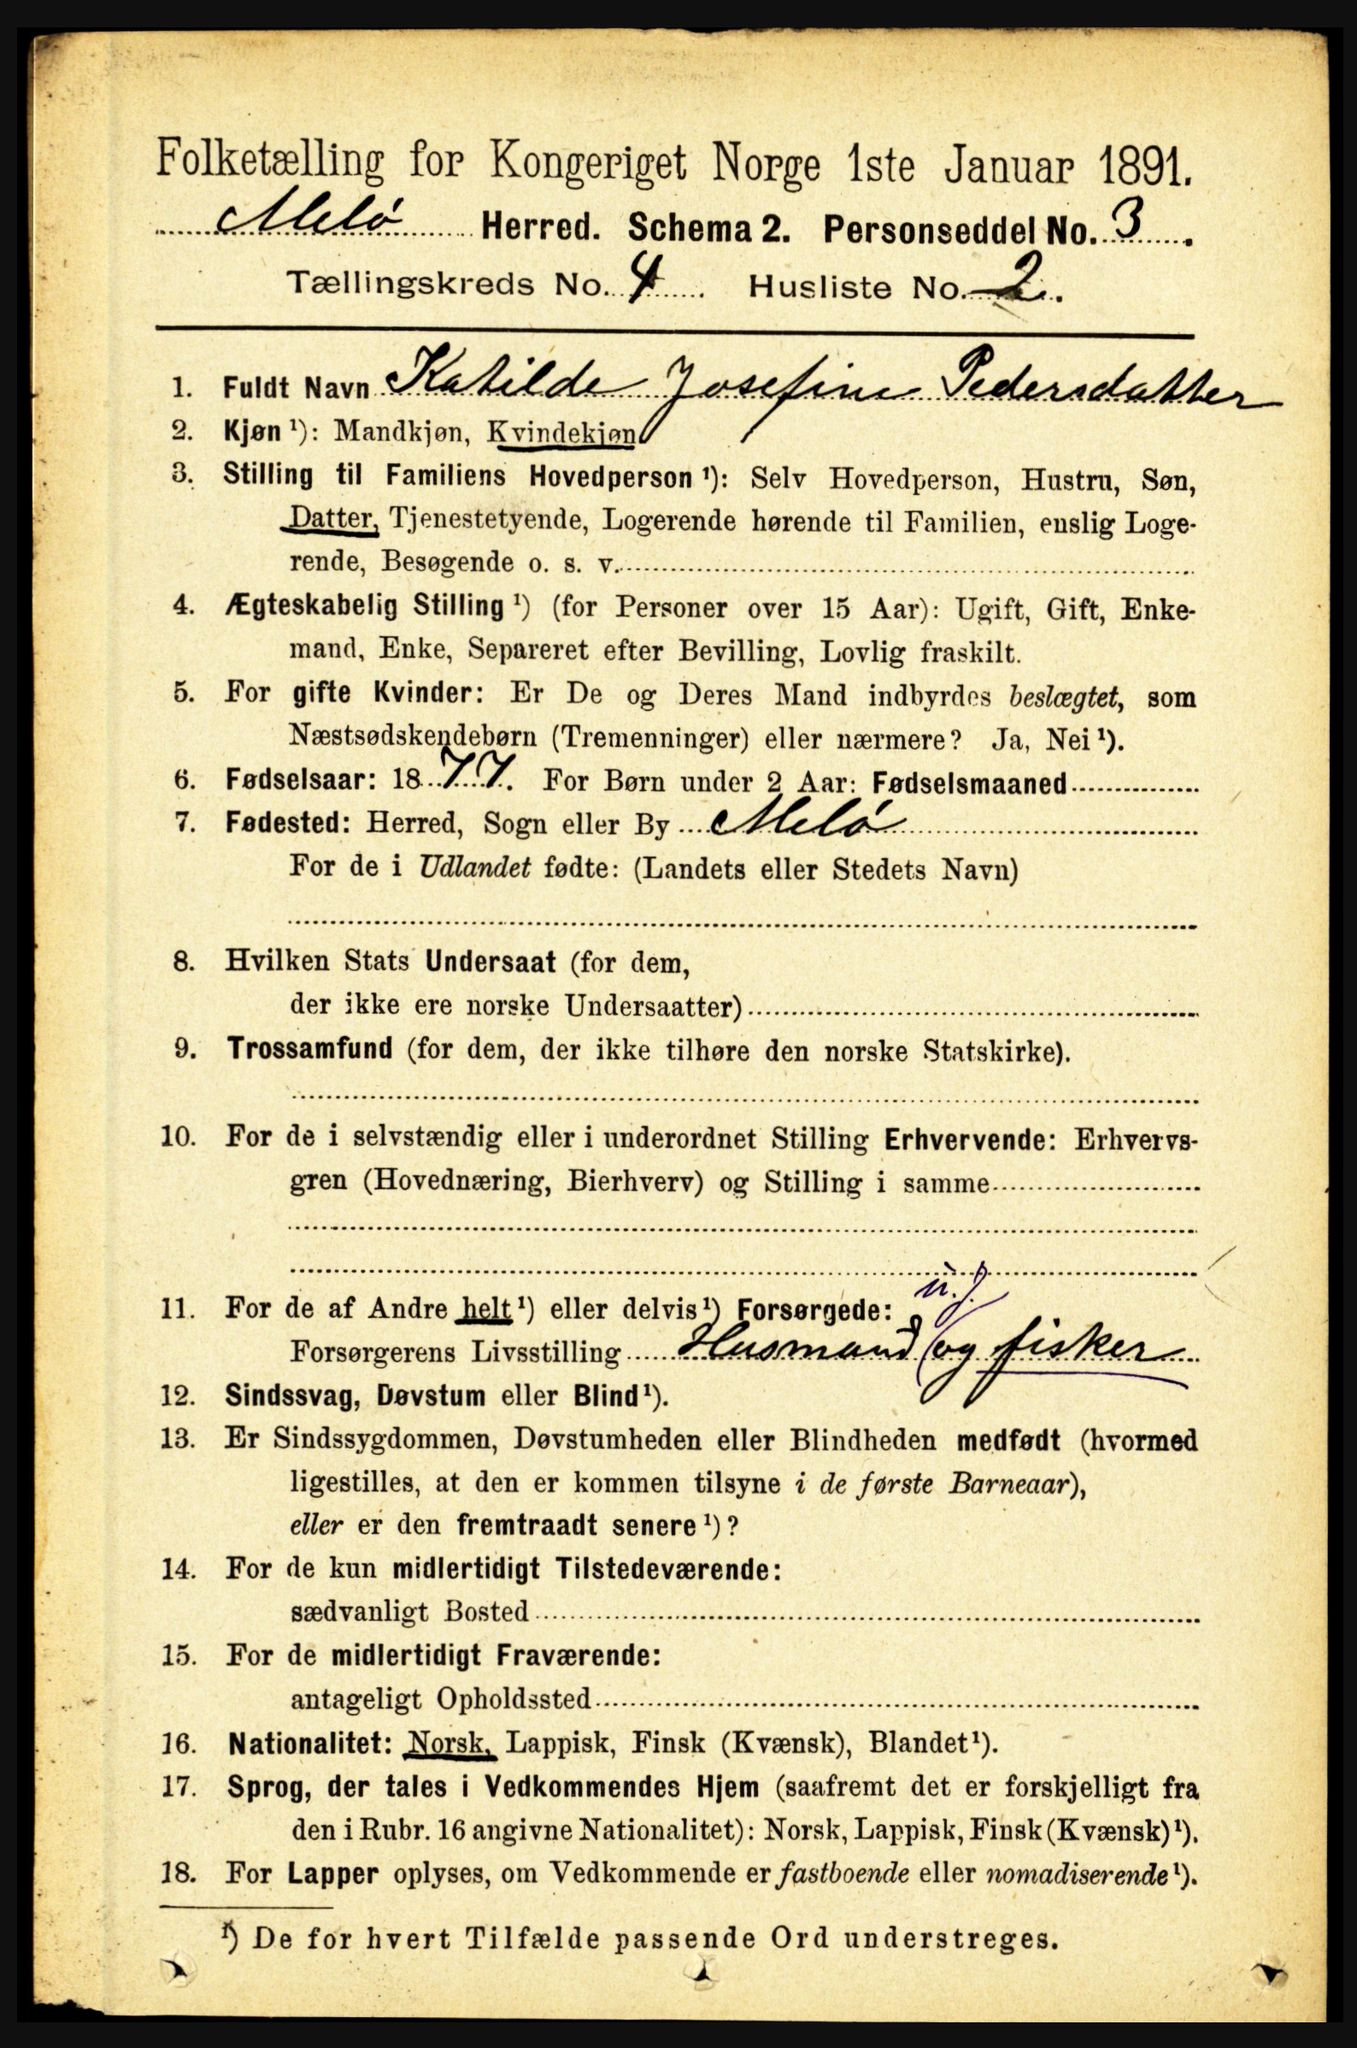 Folketælling for Kongeriget Norge 1ste Januar 1891.
Melö Herred. Schema 2. Personseddel No. 3.
Tællingskreds No. 4. Husliste No. 2.
1. Fuldt Navn Katilde Josefine Pedersdatter
2. Kjøn ¹): Mandkjøn, Kvindekjøn
3. Stilling til Familiens Hovedperson ¹): Selv Hovedperson, Hustru, Søn,
Datter, Tjenestetyende, Logerende hørende til Familien, enslig Loge-
rende, Besøgende o. s. v.
4. Ægteskabelig Stilling ¹) (for Personer over 15 Aar): Ugift, Gift, Enke-
mand, Enke, Separeret efter Bevilling, Lovlig fraskilt.
5. For gifte Kvinder: Er De og Deres Mand indbyrdes beslægtet, som
Næstsødskendebørn (Tremenninger) eller nærmere? Ja, Nei ¹).
6. Fødselsaar: 1877. For Børn under 2 Aar: Fødselsmaaned
7. Fødested: Herred, Sogn eller By Melö
For de i Udlandet fødte: (Landets eller Stedets Navn)
8. Hvilken Stats Undersaat (for dem,
der ikke ere norske Undersaatter)
9. Trossamfund (for dem, der ikke tilhøre den norske Statskirke).
10. For de i selvstændig eller i underordnet Stilling Erhvervende: Erhvervs-
gren (Hovednæring, Bierhverv) og Stilling i samme
u. J.
11. For de af Andre helt ¹) eller delvis ¹) Forsørgede:
Forsørgerens Livsstilling Husmand (og fisker
12. Sindssvag, Døvstum eller Blind ¹).
13. Er Sindssygdommen, Døvstumheden eller Blindheden medfødt (hvormed
ligestilles, at den er kommen tilsyne i de første Barneaar),
eller er den fremtraadt senere ¹)?
14. For de kun midlertidigt Tilstedeværende:
sædvanligt Bosted
15. For de midlertidigt Fraværende:
antageligt Opholdssted
16. Nationalitet: Norsk, Lappisk, Finsk (Kvænsk), Blandet ¹).
17. Sprog, der tales i Vedkommendes Hjem (saafremt det er forskjelligt fra
den i Rubr. 16 angivne Nationalitet): Norsk, Lappisk, Finsk (Kvænsk) ¹).
18. For Lapper oplyses, om Vedkommende er fastboende eller nomadiserende ¹).
¹) De for hvert Tilfælde passende Ord understreges.